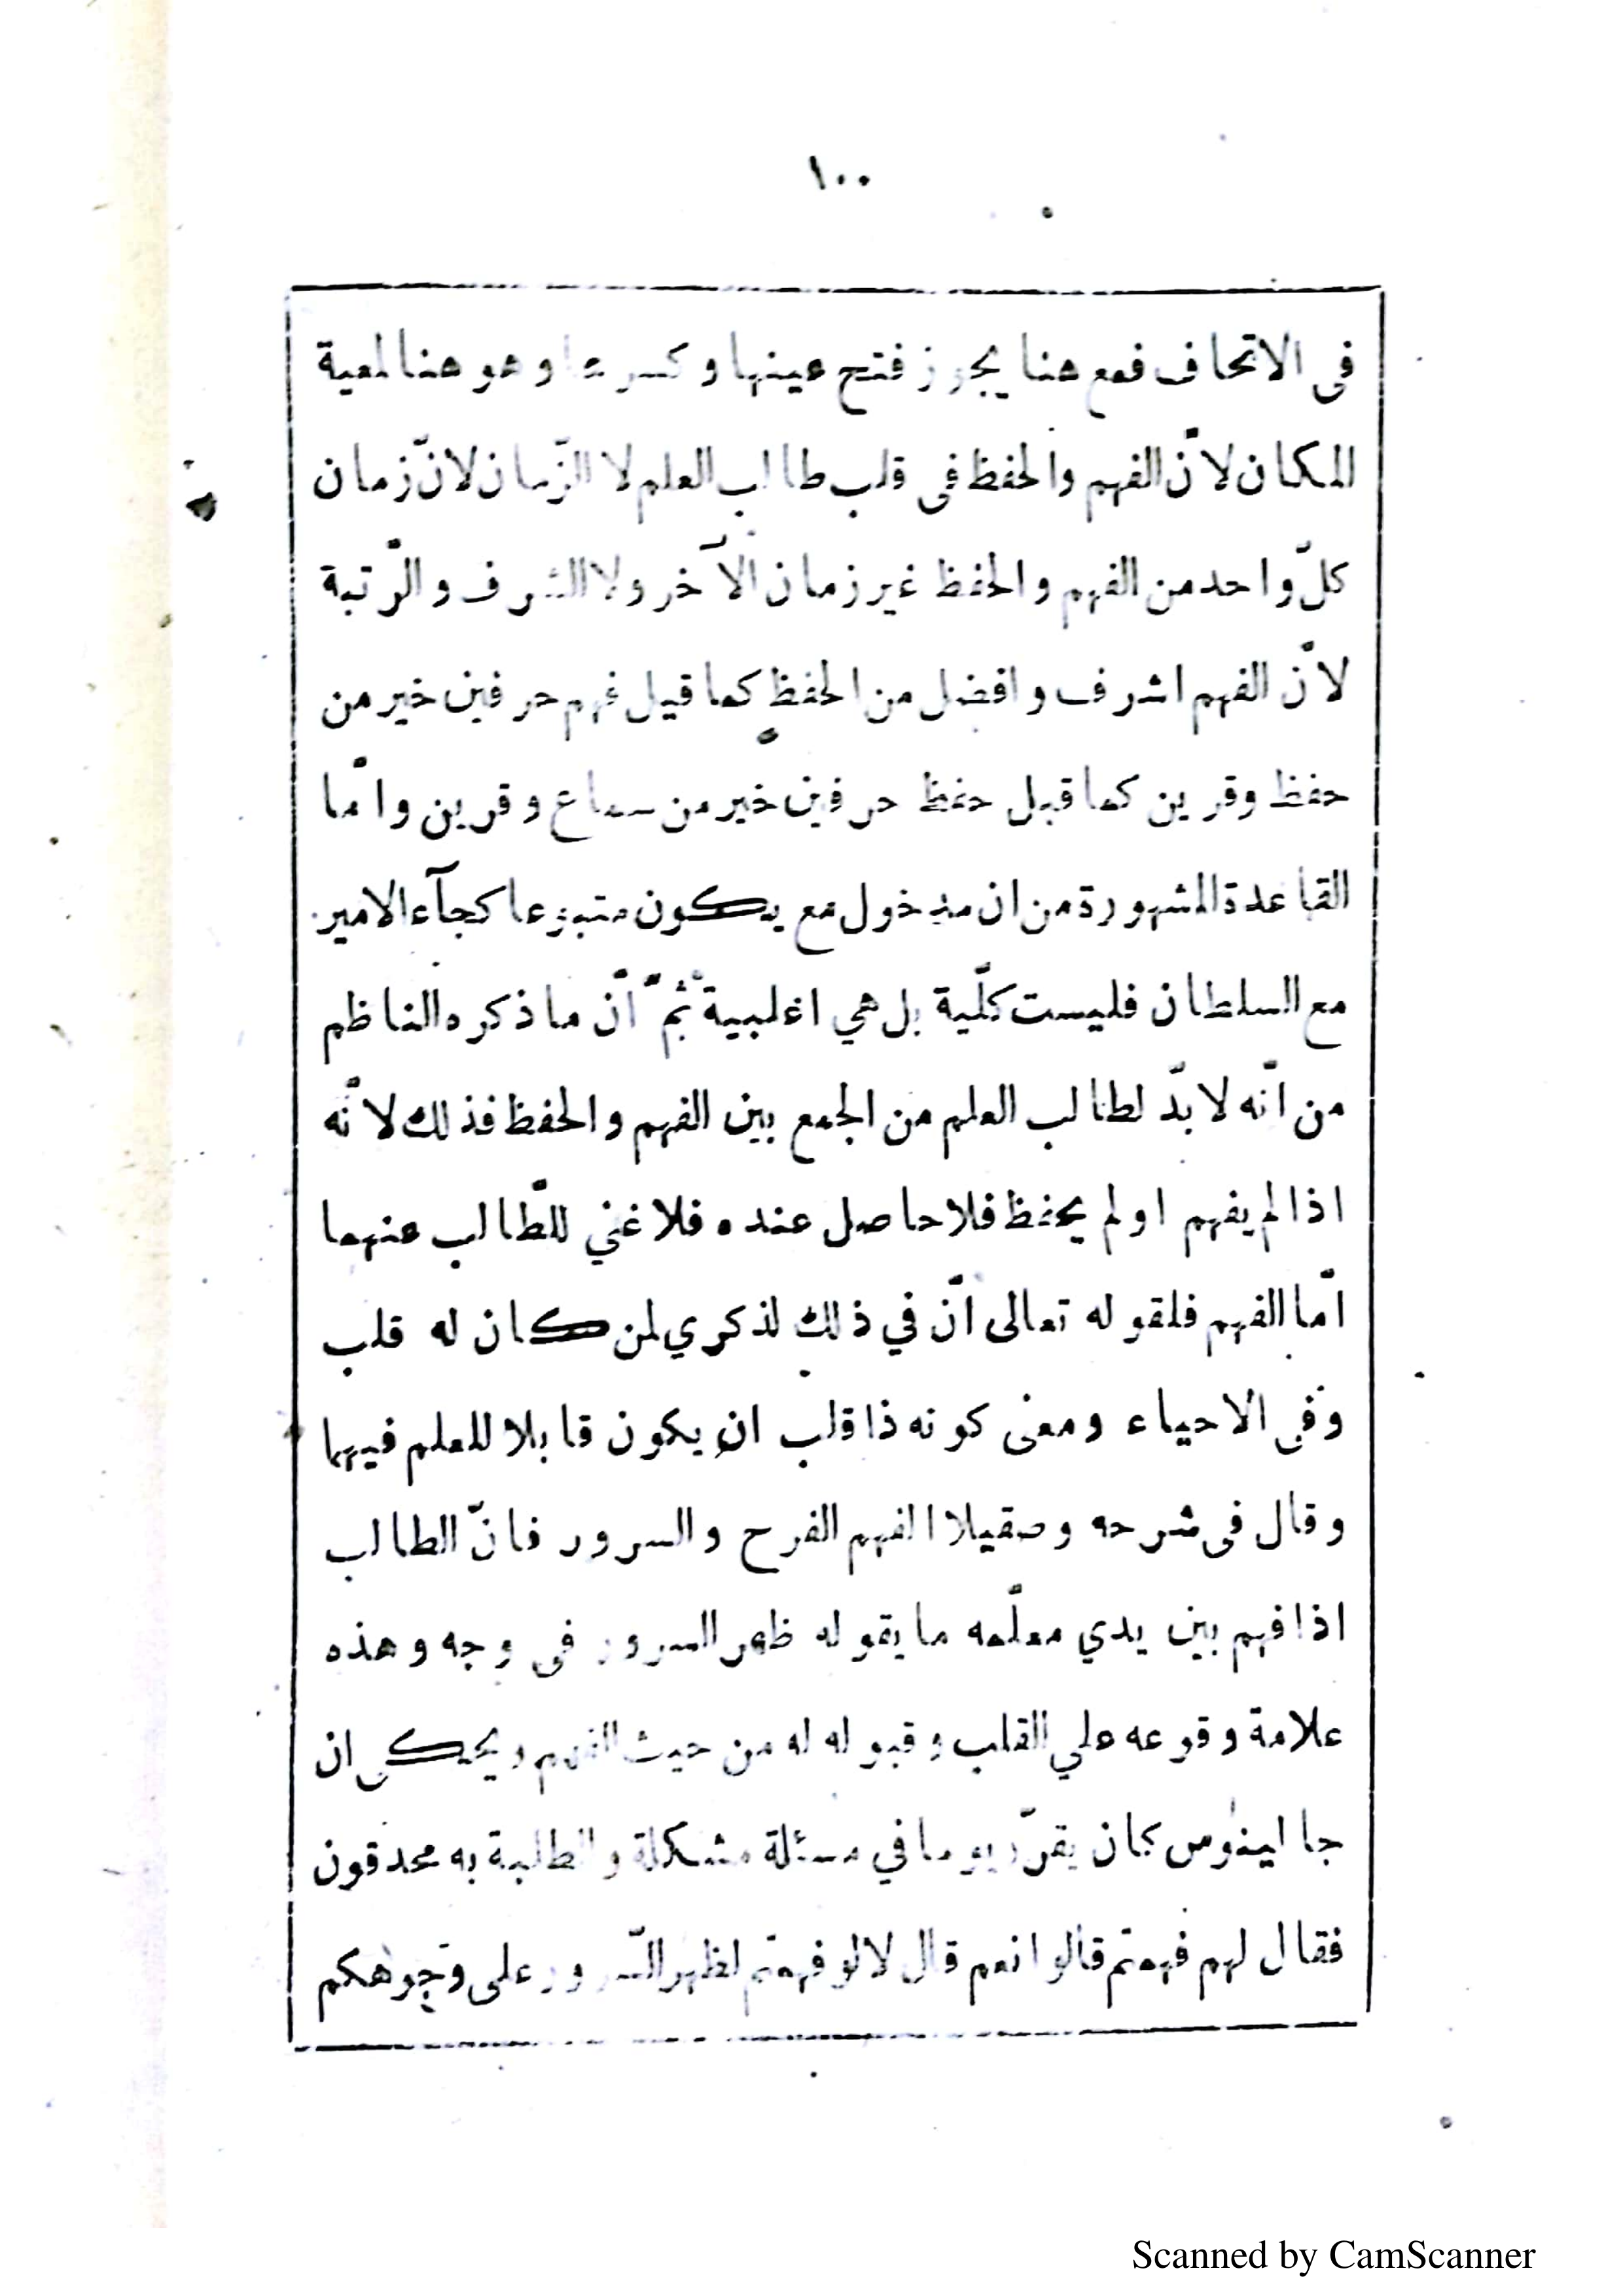 ١٠٠
فى الاتحاف فمع هنا يجوز فتح عينها وكسرها وهو هنا لمعية
المكان لانّ الفهم والحفظ فى قلب طالب العلم لا الزّمان لانّ زمان
كلّ واحد من الفهم والحفظ غير زمان الآخر ولا الشرف والرّتبة
لانّ الفهم اشرف وافضل من الحفظ كما قيل فهم حرفين خير من
حفظ وقرين كما قيل حفظ حرفين خير من سماع وقرين وامّا
القاعدة المشهورة من ان مدخول مع يكون متبوعا كجآء الامير
مع السلطان فليست كلّية بل هي اغلبية ثمّ انّ ما ذكره الناظم
من انّه لا بدّ لطالب العلم من الجمع بين الفهم والحفظ فذلك لانّه
اذا لم يفهم او لم يحفظ فلا حاصل عنده فلا غني للطّالب عنهما
امّا الفهم فلقوله تعالى انّ في ذلك لذكري لمن كان له قلب
وفى الاحياء ومعنى كونه ذا قلب ان يكون قابلا للعلم فيهما
وقال فى شرحه وصقيلا الفهم الفرح والسرور فانّ الطالب
اذا فهم بين يدي معلّمه ما يقوله ظهر السرور فى وجه وهذه
علامة وقوعه علي القلب وقبوله له من حيث الفهم ويحكى ان
جالينوس كان يقرّر يوما في مسئلة مشكلة والطلبة به محدقون
فقال لهم فهمتم قالوا نعم قال لا لو فهمتم لظهر السّرور على وجوهكم
Scanned by CamScanner